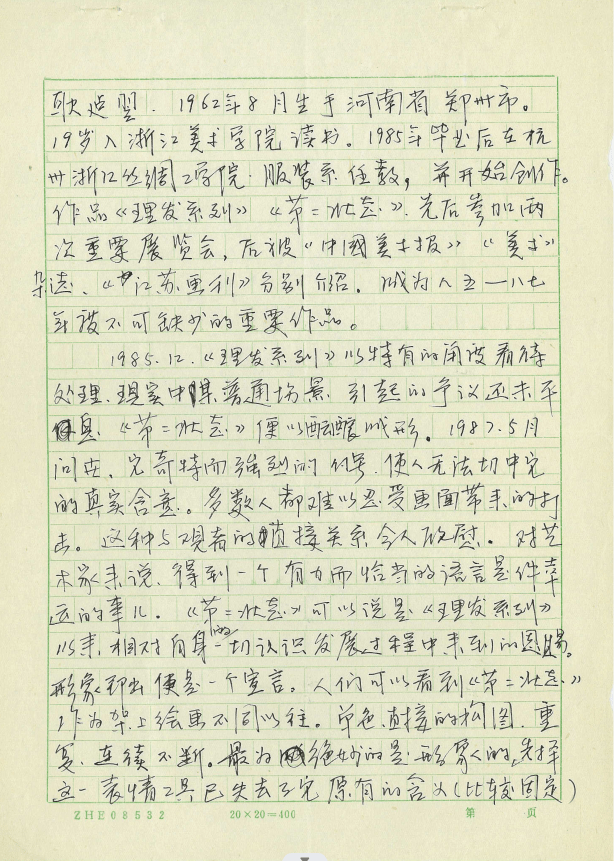 耿建翌. 1962年8月生于河南省郑州市。
19岁入浙江美术学院读书. 1985年毕业后在杭
州浙江丝绸工学院·服装系任教, 并开始创作。
作品《理发系列》《第二状态》. 先后参加两
次重要展览会, 后被《中國美术报》《美术》
杂志、《江苏画刊》分别介绍. 成为八五—八七
年被不可缺少的重要作品。
1985.12.《理发系列》以特有的角度看待
处理. 现实中某普通场景. 引起的争议还未平
息. 《第二状态》便以酝酿成形. 1987.5月
问世. 它奇特而强烈的信号. 使人无法切中它
的真实含意。多数人都难以忍受画面带来的打
击。这种与观者的直接关系令人欣慰。对艺
术家来说. 得到一个有力而恰当的语言是件幸
运的事儿. 《第二状态》可以说是《理发系列》
以来, 相对自身的一切认识发展过程中来到的圆场。
形象即出便是一个宣言。人们可以看到《第二状态》
作为架上绘画不同以往. 单色. 直接的构图. 重
复. 连续不断. 最为绝妙的是形象的选择
这一表情工具已失去了它原有的含义(比较固定)
ZHE08532 20×20=400 第 页